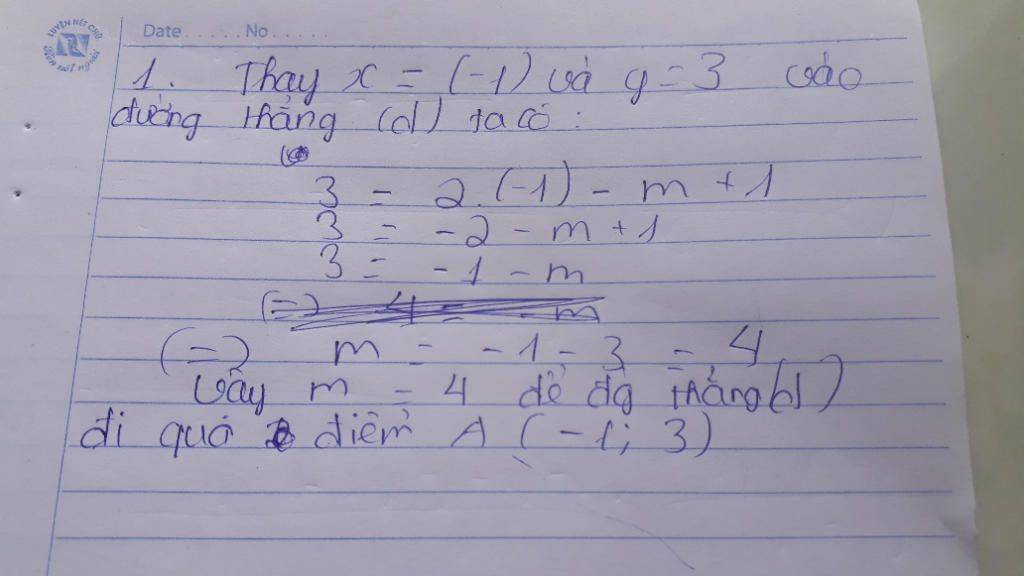 LUYỆN NÉT CHỮ
Date ..... No .....
1. Thay x = (-1) và y = 3 vào
đường thẳng (d) ta có:
3 = 2.(-1) - m + 1
3 = -2 - m + 1
3 = -1 - m
(=) 4 = - m
(=) m = -1 - 3 = 4
Vậy m = 4 để đg thẳng (d)
đi quá điểm A (-1; 3)